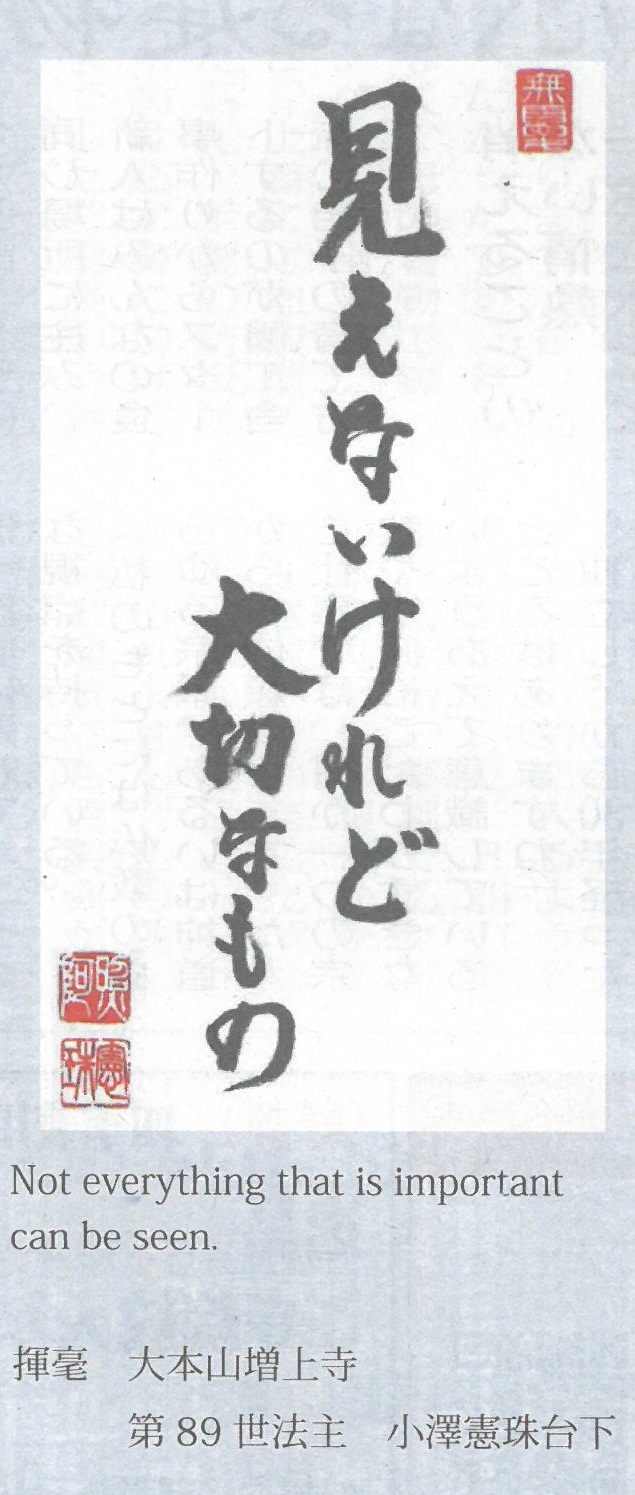 見えないけれど
大切なもの
照阿
憲珠
Not everything that is important
can be seen.
揮毫　大本山増上寺
第89世法主　小澤憲珠台下